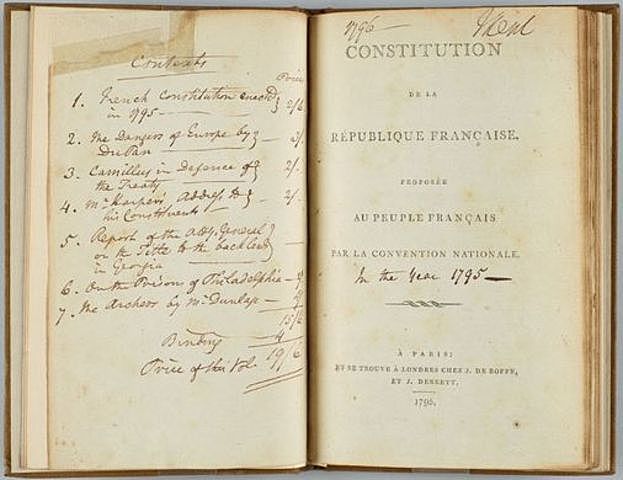 Contents
Price
1. French Constitution enacted
in 1795 — 2/6
2. The Dangers of Europe by
Du Pan —
3. Camillus in Defence of
the Treaty 2/.
4. Mr Harper's Address to
his Constituents — 2/.
5. Report of the Atty General
on the Title to the back land
in Georgia
6. On the Prison of Philadelphia —
7. The Archers by Mr Dunlap —
15/6
Binding 4
Price of this Vol. 19/6
1796
CONSTITUTION
DE LA
RÉPUBLIQUE FRANÇAISE,
PROPOSÉE
AU PEUPLE FRANÇAIS
PAR LA CONVENTION NATIONALE.
In the Year 1795 —
À PARIS;
ET SE TROUVE À LONDRES CHEZ J. DE BOFFE,
ET J. DEBRETT.
1796.